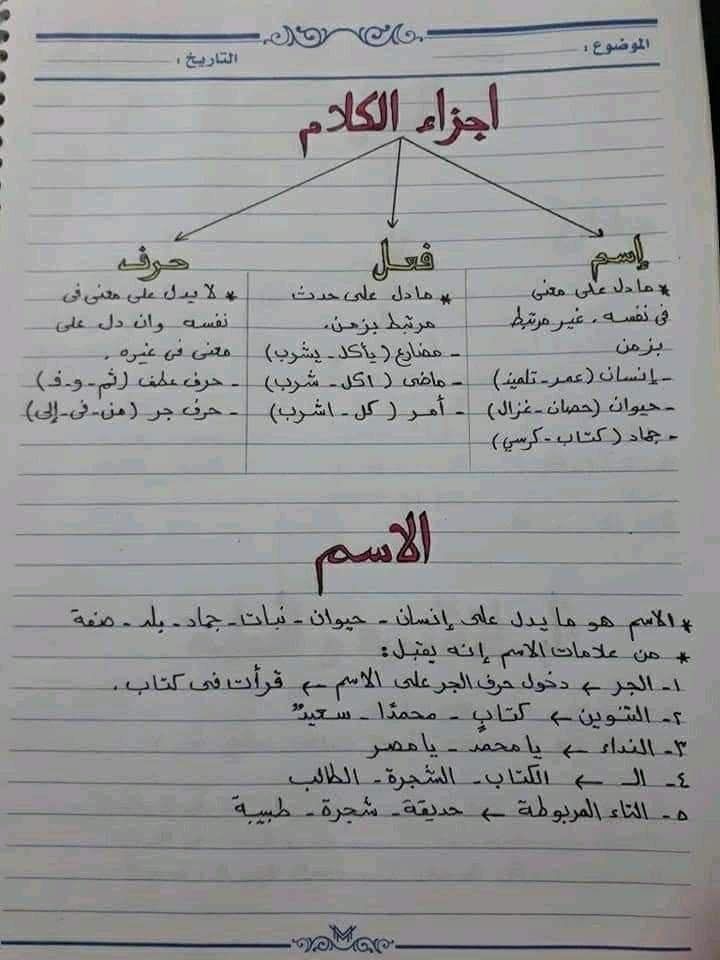 الموضوع :
التاريخ :
اجزاء الكلام
إسم
* ما دل على معنى
فى نفسه . غير مرتبط
بزمن
- إنسان (عمر - تلميذ)
- حيوان (حصان - غزال)
- جماد (كتاب - كرسي)
فعل
* ما دل على حدث
مرتبط بزمن.
- مضارع (يأكل - يشرب)
- ماضى (اكل - شرب)
- أمر (كل - اشرب)
حرف
* لا يدل على معنى فى
نفسه وان دل على
معنى فى غيره .
- حرف عطف (ثم - و - ف)
- حرف جر (من - فى - إلى)
الاسم
* الاسم هو ما يدل على إنسان - حيوان - نبات - جماد - بلد - صفة
* من علامات الاسم إنه يقبل :
١- الجر ← دخول حرف الجر على الاسم ← قرأت فى كتاب .
٢- التنوين ← كتابٍ - محمدًا - سعيدٌ
٣- النداء ← يا محمد - يا مصر
٤- الـ ← الكتاب - الشجرة - الطالب
٥- التاء المربوطة ← حديقة - شجرة - طبيبة